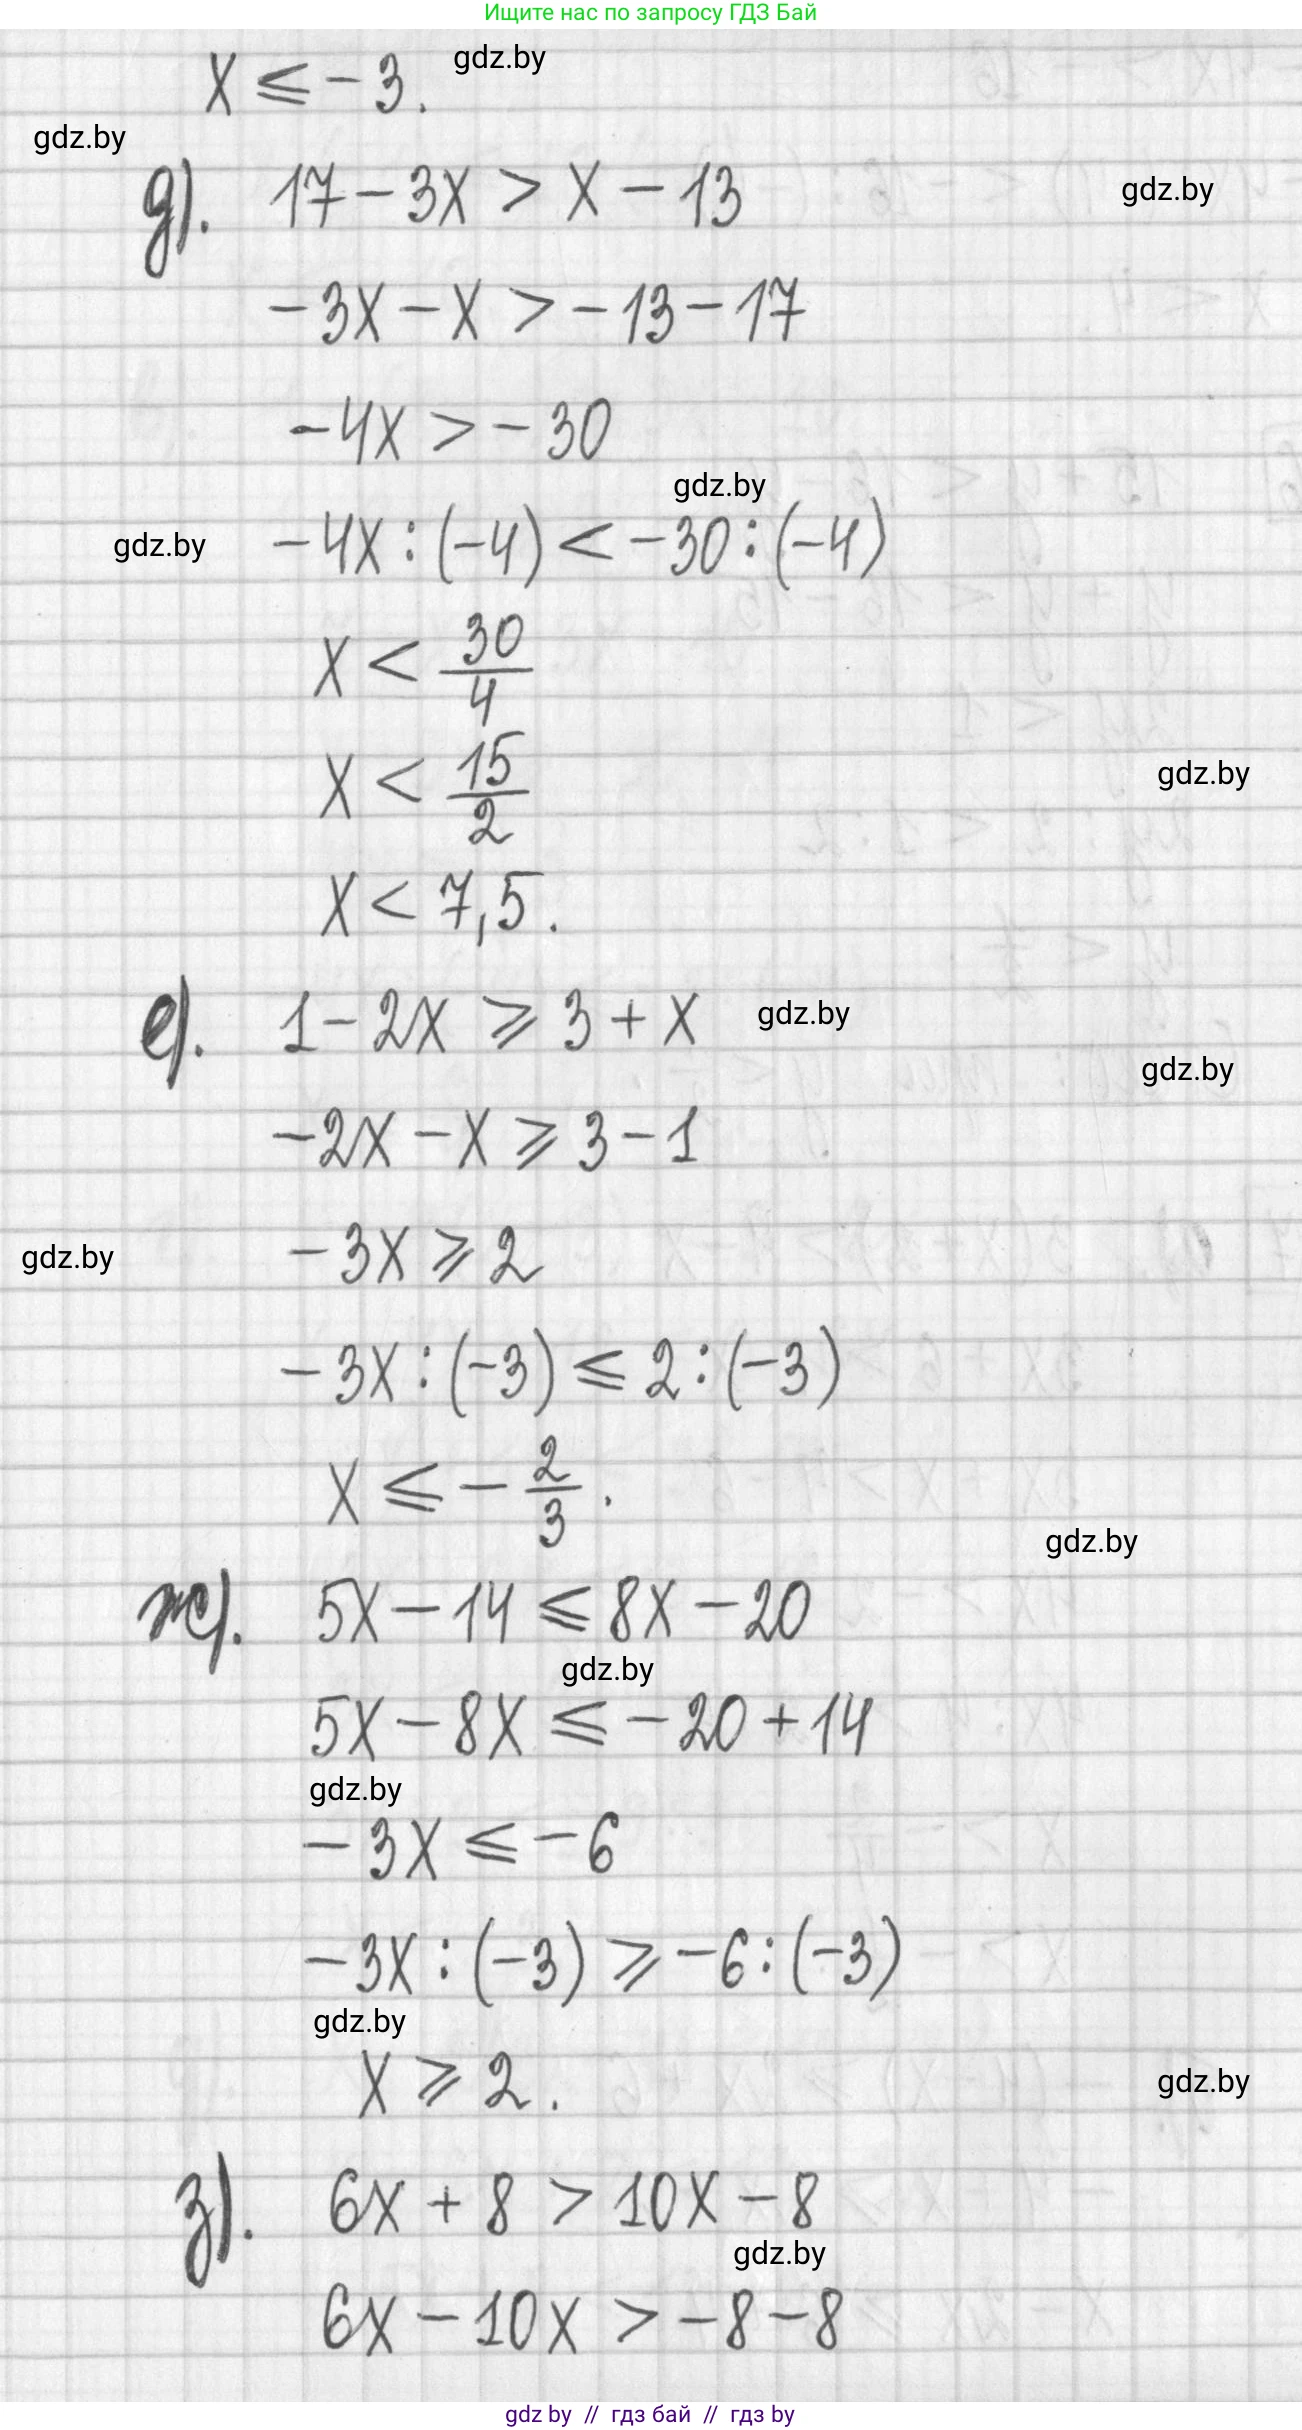 Ищите нас по запросу ГДЗ Бай
x ⩽ -3.
gdz.by
gdz.by
д). 17 - 3x > x - 13
gdz.by
-3x - x > -13 - 17
-4x > -30
gdz.by
gdz.by
-4x : (-4) < -30 : (-4)
x < 30/4
x < 15/2
gdz.by
x < 7,5.
е). 1 - 2x ⩾ 3 + x
gdz.by
gdz.by
-2x - x ⩾ 3 - 1
-3x ⩾ 2
gdz.by
-3x : (-3) ⩽ 2 : (-3)
x ⩽ - 2/3.
gdz.by
ж). 5x - 14 ⩽ 8x - 20
gdz.by
5x - 8x ⩽ -20 + 14
gdz.by
-3x ⩽ -6
-3x : (-3) ⩾ -6 : (-3)
gdz.by
x ⩾ 2.
gdz.by
з). 6x + 8 > 10x - 8
gdz.by
6x - 10x > -8 - 8
gdz by // гдз бай // гдз by